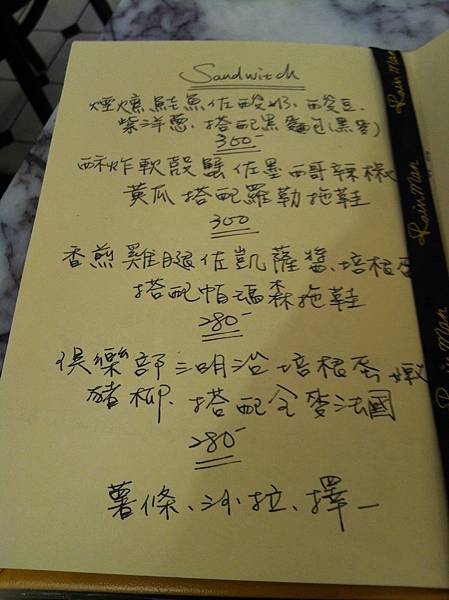 Sandwitch
煙燻鮭魚佐酸奶、酸豆、
紫洋蔥、搭配黑麵包(黑麥)
300-
酥炸軟殼蟹佐墨西哥辣椒
黃瓜搭配羅勒拖鞋
300
香煎雞腿佐凱薩醬、培根蛋
搭配帕瑪森拖鞋
280-
俱樂部三明治培根蛋嫩
豬柳、搭配全麥法國
280-
薯條、沙拉、擇一
Rain Man
Rain Man
Rain Man